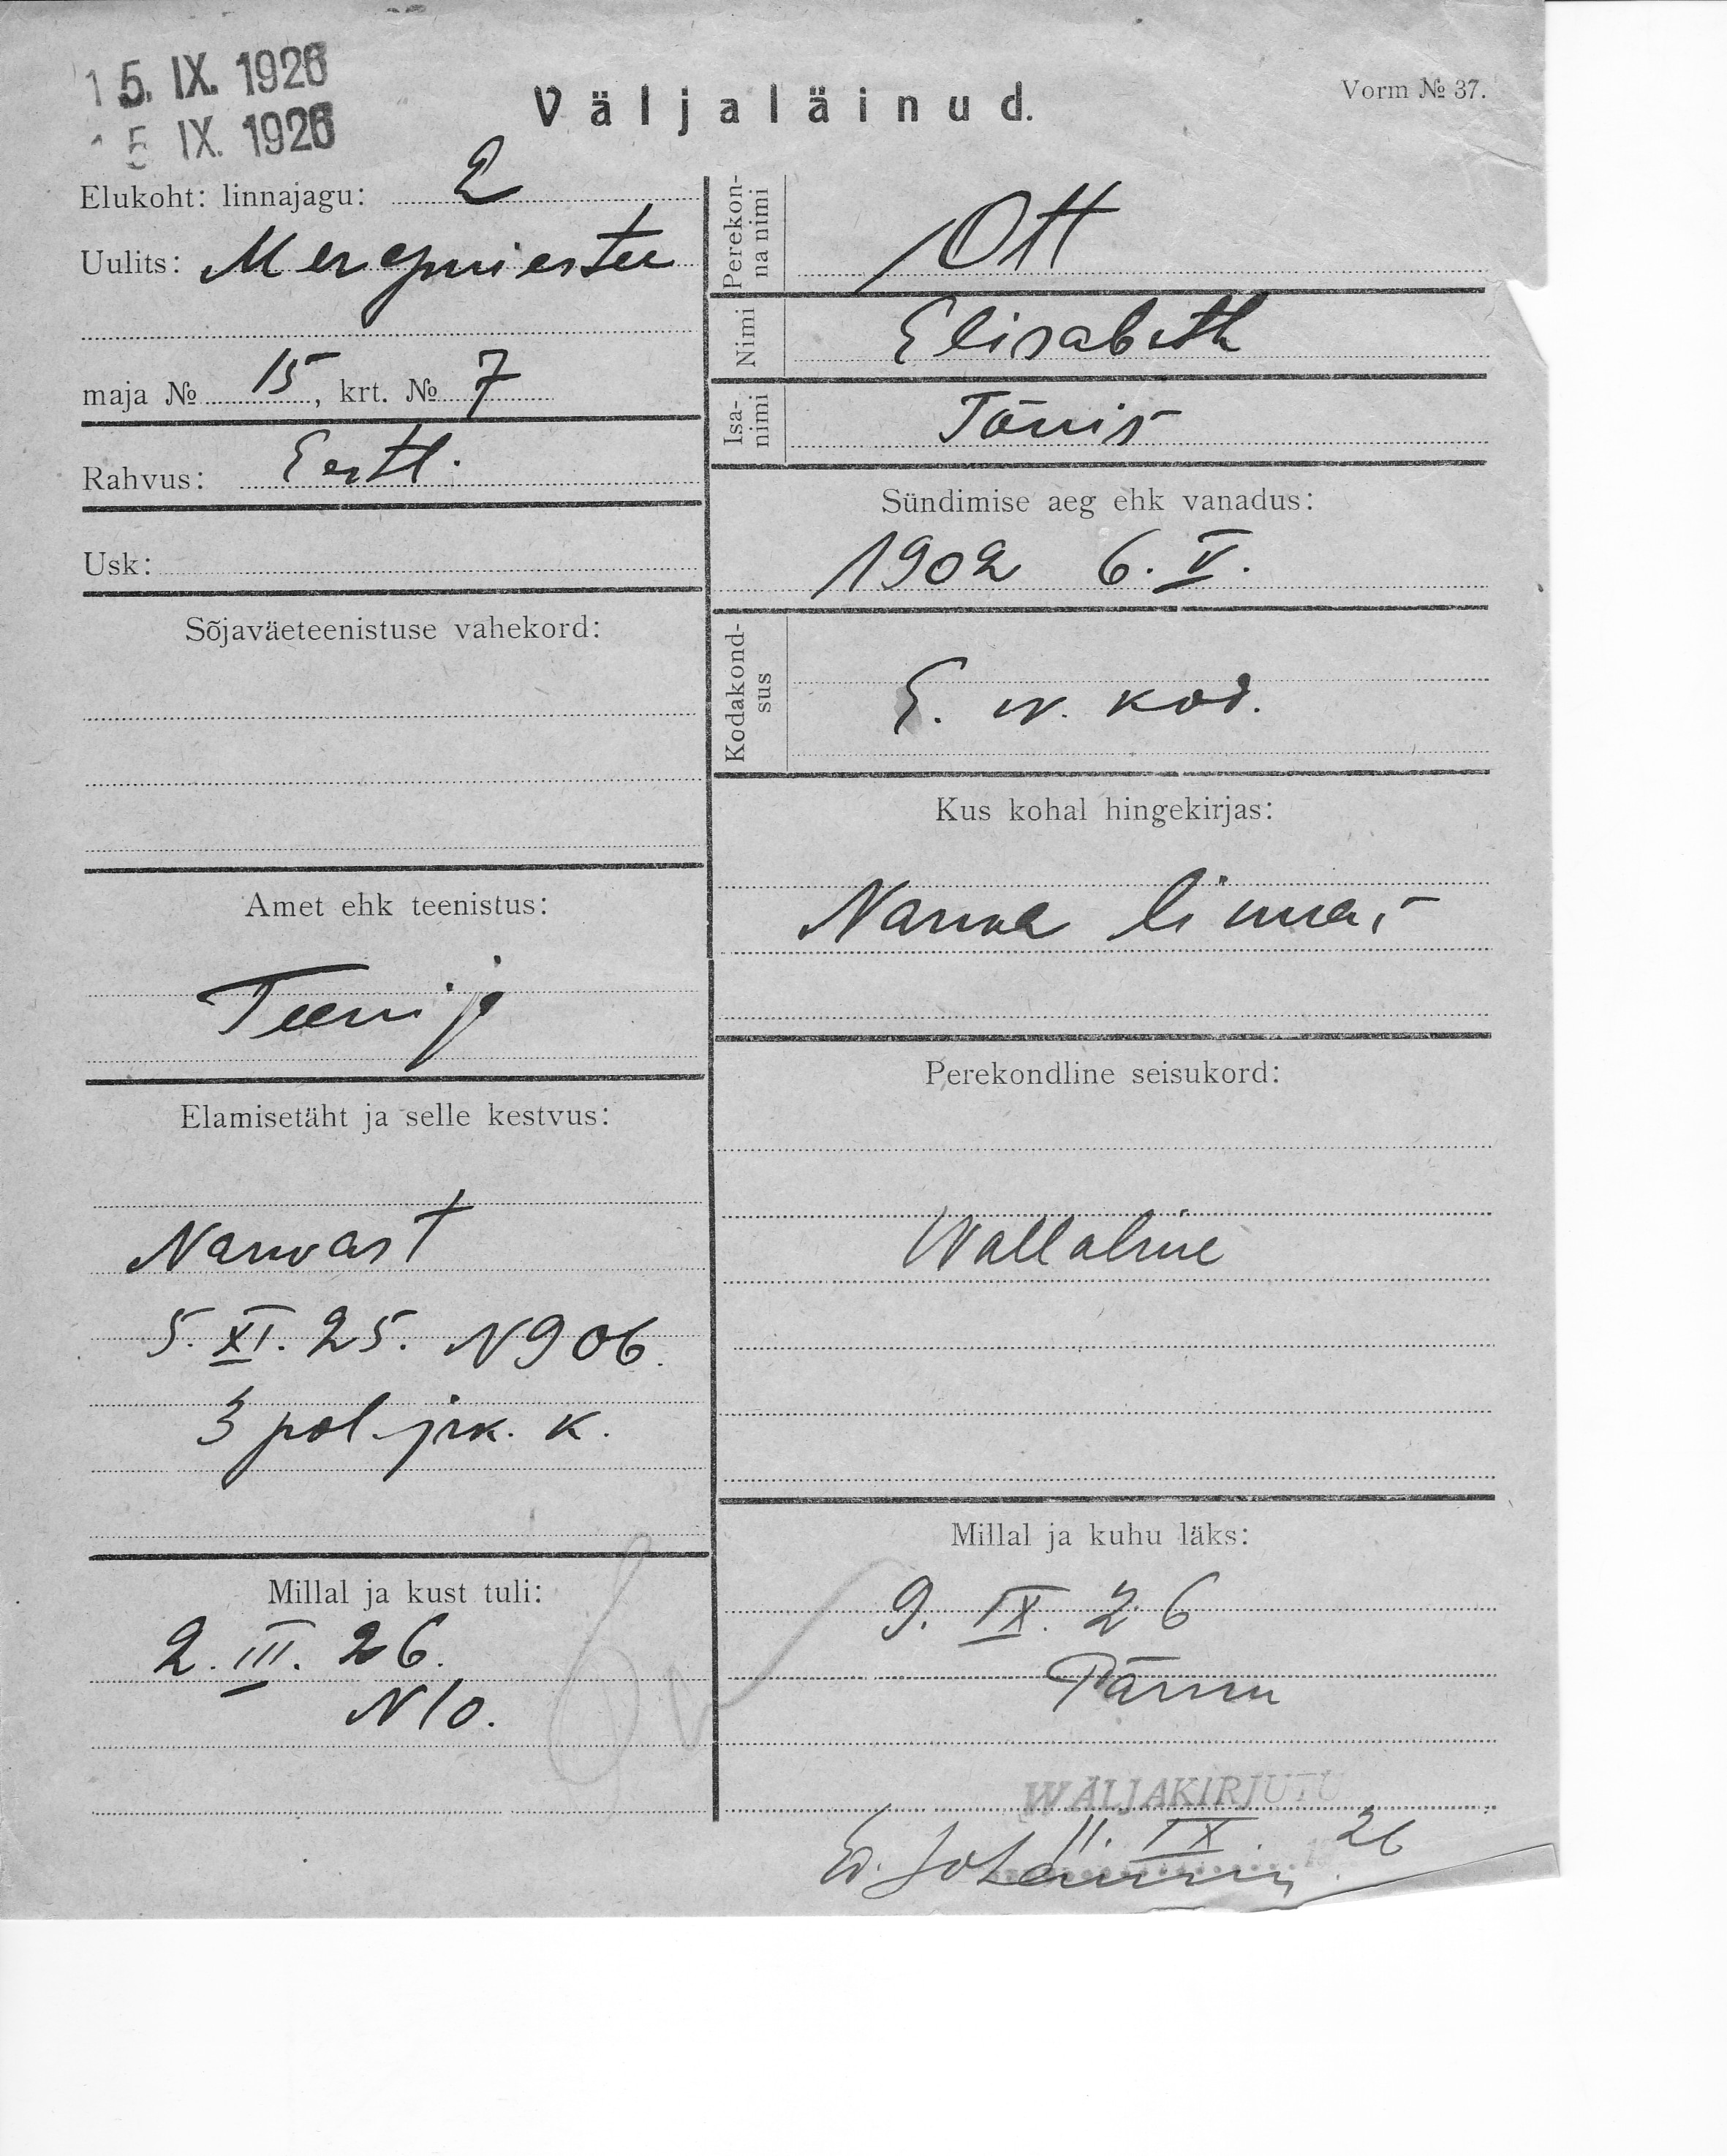 15. IX. 1926
15 IX. 1926
Väljaläinud.
Vorm № 37.
Elukoht: linnajagu: 2
Uulits: Meremiestee
maja № 15, krt. № 7
Rahvus: Eestl.
Usk:
Sõjaväeteenistuse vahekord:
Amet ehk teenistus:
Teenija
Elamisetäht ja selle kestvus:
Narvast
5. XI. 25. N 906.
3 pol. jrk. k.
Millal ja kust tuli:
2. III. 26.
N 10.
Perekon-
na nimi
Ott
Nimi
Elisabeth
Isa-
nimi
Tõnis
Sündimise aeg ehk vanadus:
1902 6. V.
Kodakond-
sus
E. w. kod.
Kus kohal hingekirjas:
Narva linnas
Perekondline seisukord:
Wallaline
Millal ja kuhu läks:
9. IX. 26
Pärnu
WÄLJAKIRJUTU
11. IX. 26